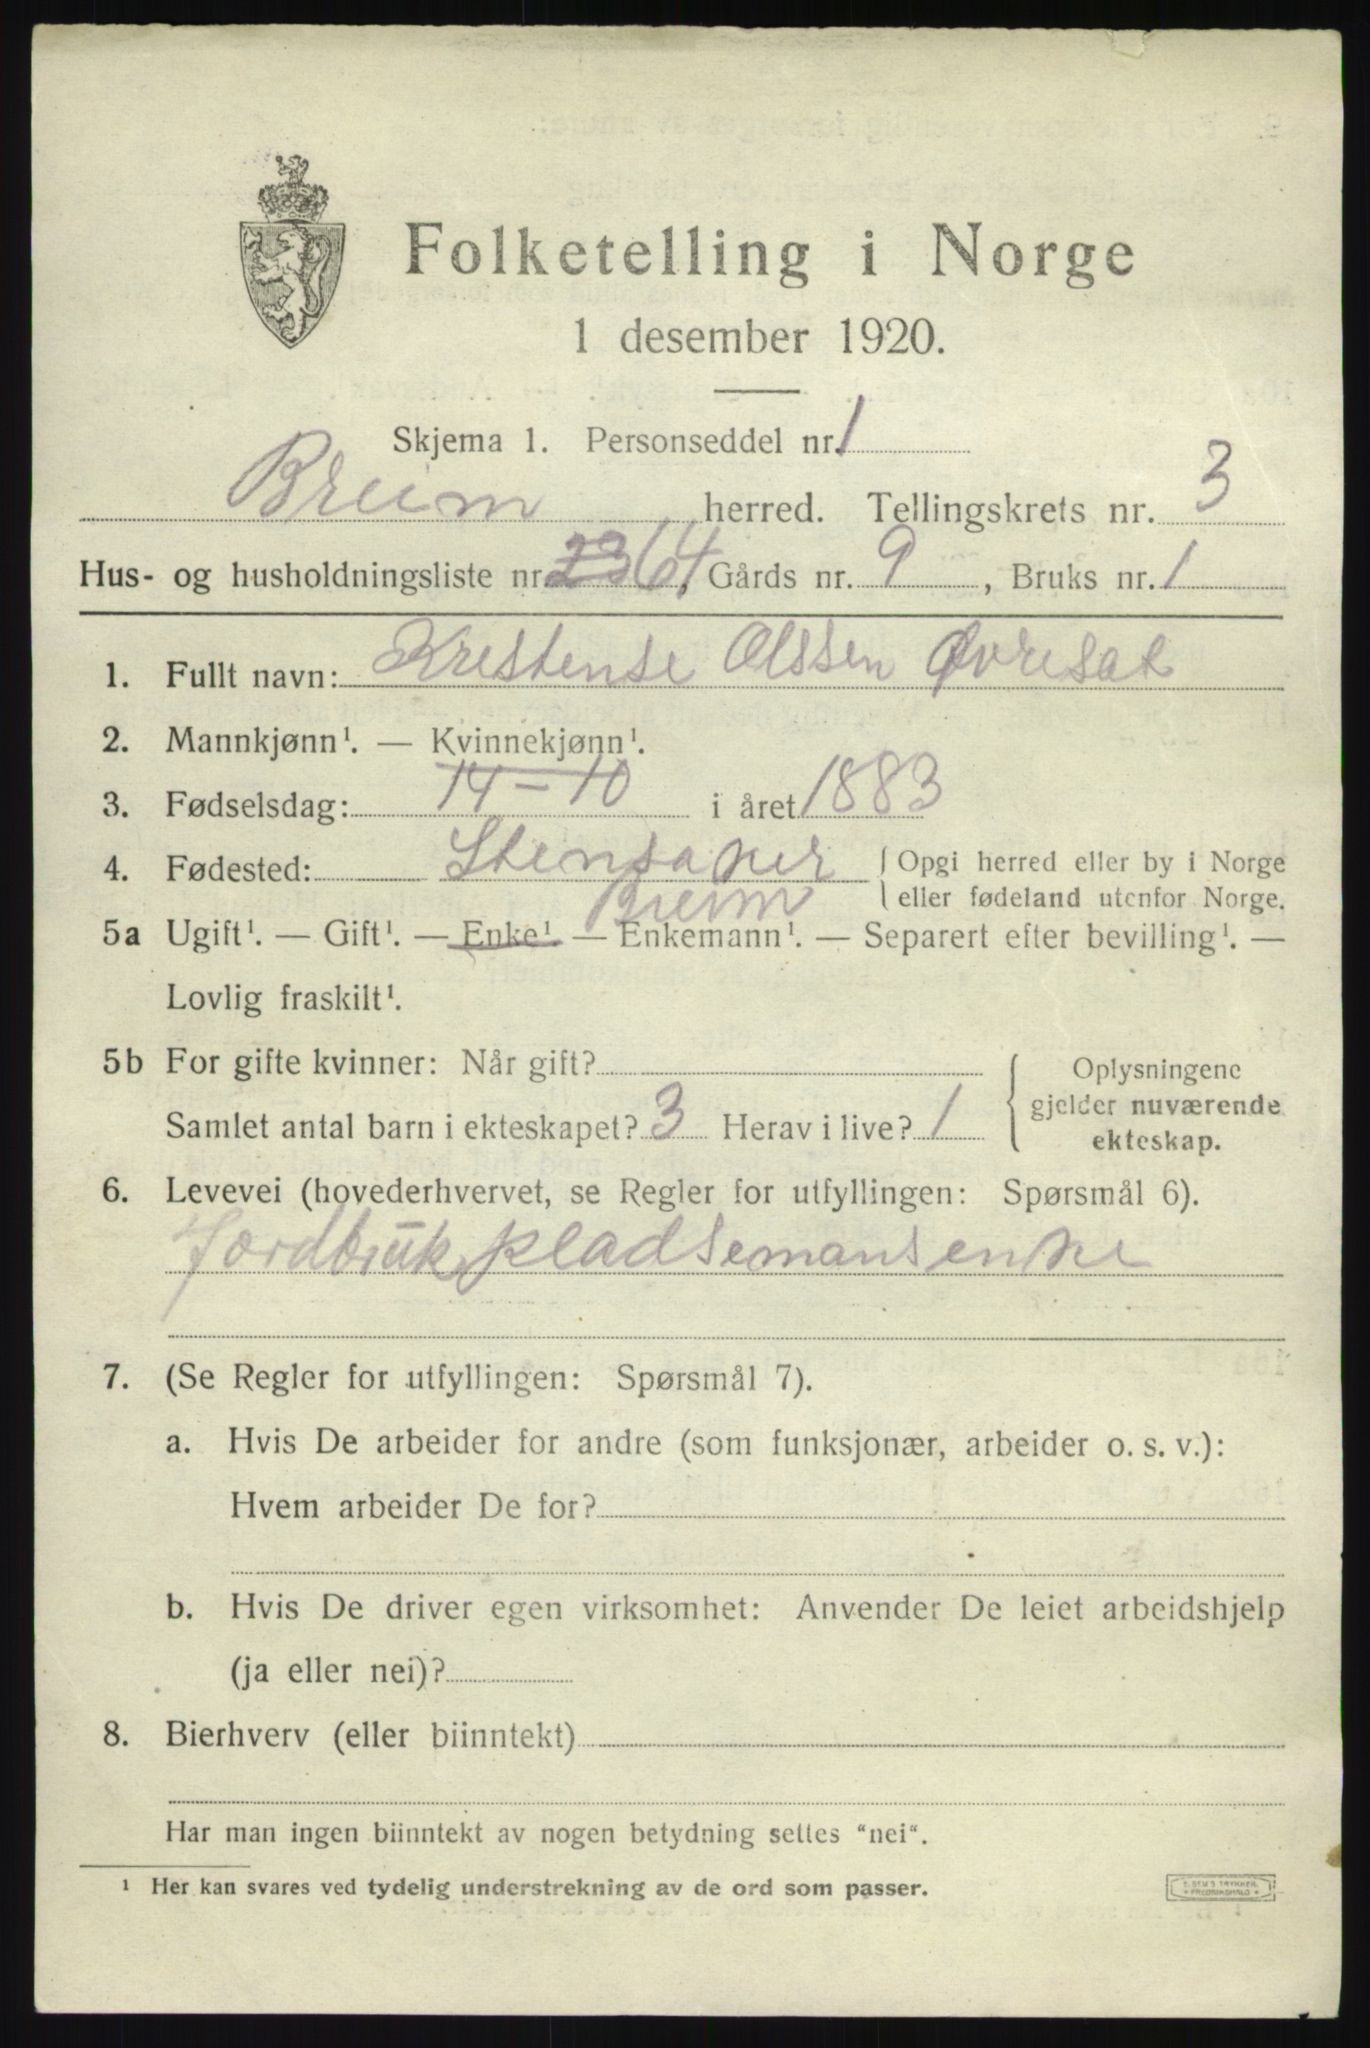 Folketelling i Norge
1 desember 1920.
Skjema 1. Personseddel nr. 1
Breim herred. Tellingskrets nr. 3
Hus- og husholdningsliste nr. 64, Gårds nr. 9, Bruks nr. 1
1. Fullt navn: Krestense Olssen Øvresæt
2. Mannkjønn¹. — Kvinnekjønn¹.
3. Fødselsdag: 14-10 i året 1883
4. Fødested: Stensaker { Opgi herred eller by i Norge
Breim { eller fødeland utenfor Norge.
5a Ugift¹. — Gift¹. — Enke¹ — Enkemann¹. — Separert efter bevilling¹. —
Lovlig fraskilt¹.
5b For gifte kvinner: Når gift? { Oplysningene
Samlet antal barn i ekteskapet? 3 Herav i live? 1 gjelder nuværende
ekteskap.
6. Levevei (hovederhvervet, se Regler for utfyllingen: Spørsmål 6).
Jordbruk pladsemansenke
7. (Se Regler for utfyllingen: Spørsmål 7).
a. Hvis De arbeider for andre (som funksjonær, arbeider o. s. v.):
Hvem arbeider De for?
b. Hvis De driver egen virksomhet: Anvender De leiet arbeidshjelp
(ja eller nei)?
8. Bierhverv (eller biinntekt)
Har man ingen biinntekt av nogen betydning settes "nei".
¹ Her kan svares ved tydelig understrekning av de ord som passer.